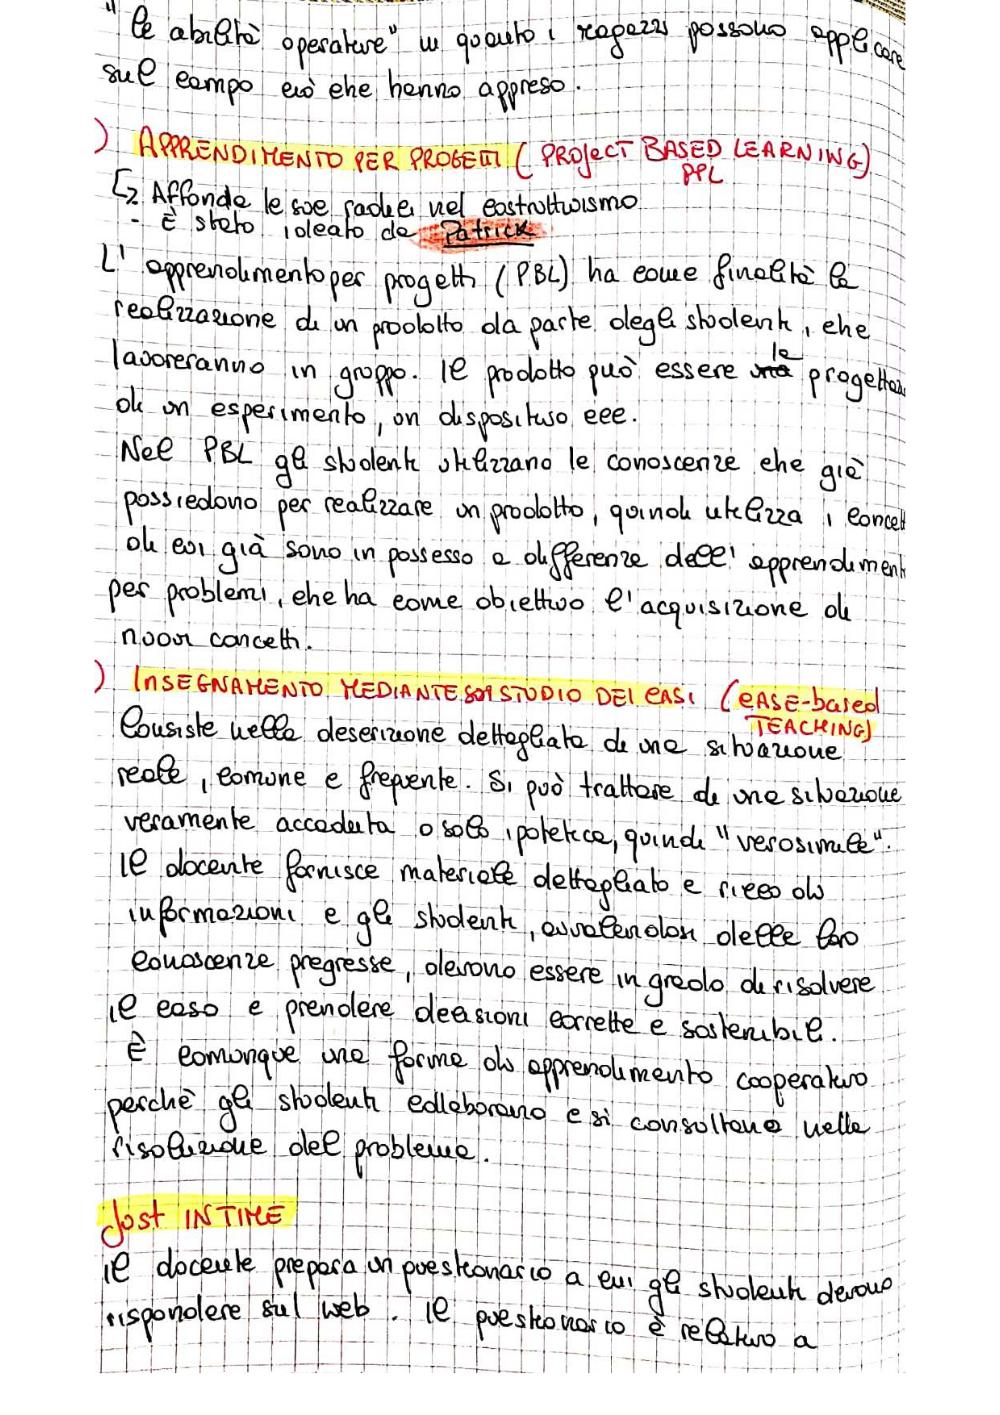 "le abilità operative" in quanto i ragazzi possono applicare
sul campo ciò che hanno appreso.
) APPRENDIMENTO PER PROGETTI ( PROJECT BASED LEARNING)
PPL
Affonda le sue radici nel costruttivismo
- È stato ideato da Patrick
L'apprendimento per progetti (PBL) ha come finalità la
realizzazione di un prodotto da parte degli studenti, che
lavoreranno in gruppo. Il prodotto può essere la progettaz
di un esperimento, un dispositivo ecc.
Nel PBL gli studenti utilizzano le conoscenze che già
possiedono per realizzare un prodotto, quindi utilizza i concett
di cui già sono in possesso a differenza dell'apprendiment
per problemi, che ha come obiettivo l'acquisizione di
nuovi concetti.
) INSEGNAMENTO MEDIANTE STUDIO DEI CASI (CASE-based
TEACHING)
Consiste nella descrizione dettagliata di una situazione
reale, comune e frequente. Si può trattare di una situazione
veramente accaduta o solo ipotetica, quindi "verosimile".
Il docente fornisce materiale dettagliato e ricco di
informazioni e gli studenti, avvalendosi delle loro
conoscenze pregresse, devono essere in grado di risolvere
il caso e prendere decisioni corrette e sostenibili.
È comunque una forma di apprendimento cooperativo
perchè gli studenti collaborano e si consultano nella
risoluzione del problema.
Just IN TIME
Il docente prepara un questionario a cui gli studenti devono
rispondere sul web. Il questionario è relativo a